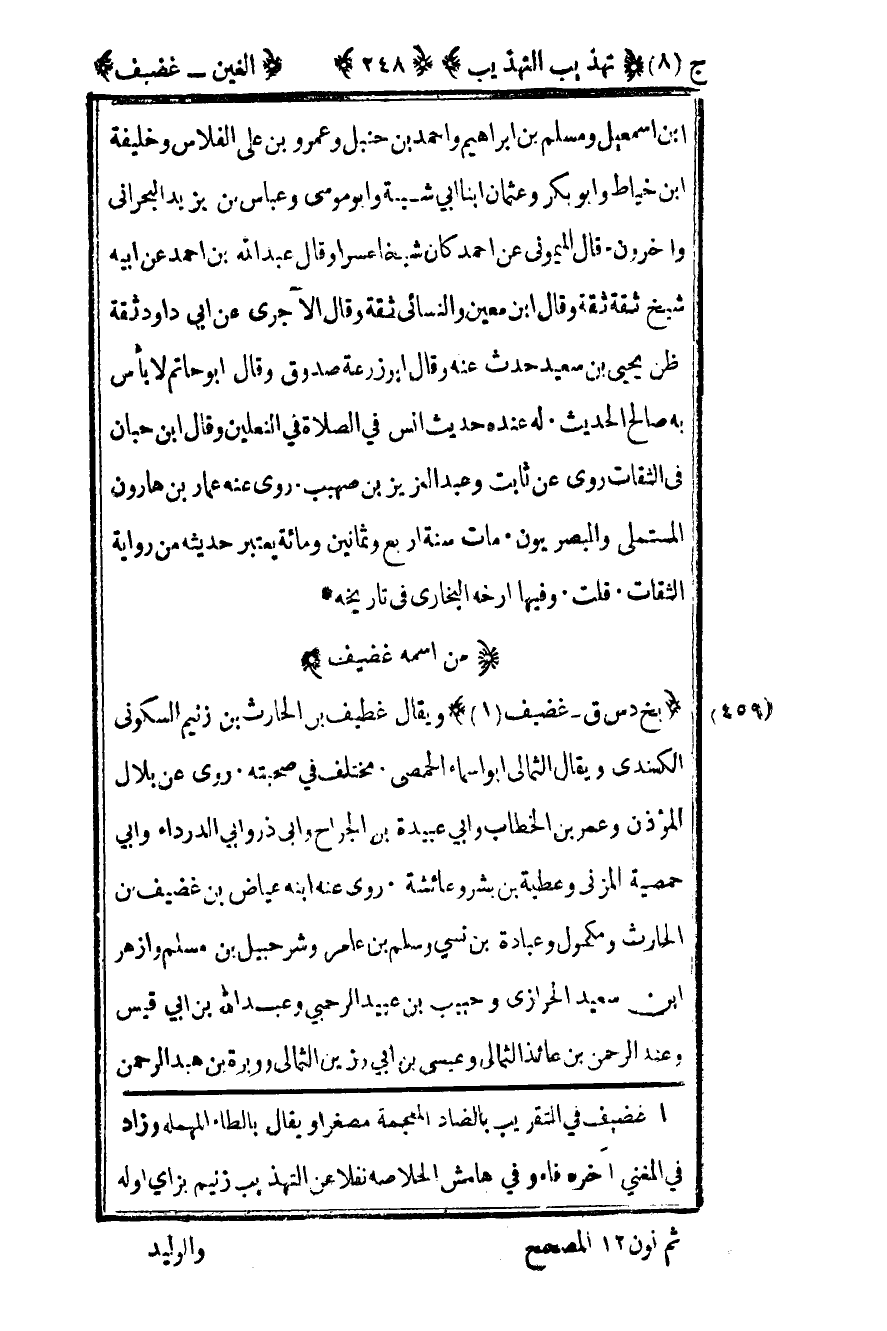 ج (٨) ﴿ تهذيب التهذيب ﴾ ﴿ ٢٤٨ ﴾ ﴿ الغين ــ غضيف ﴾
ابن اسمعيل ومسلم بن ابراهيم واحمد بن حنبل وعمرو بن على الفلاس وخليفة
ابن خياط وابو بكر وعثمان ابنا ابي شيبة وابوموسى وعباس بن يزيد البحرانى
واخرون٠ قال الميمونى عن احمد كان شيخا عسرا وقال عبدالله بن احمد عن ابيه
شيخ ثقة ثقة وقال ابن معين والنسائى ثقة وقال الآجرى عن ابي داود ثقة
ظن يحيى بن سعيد حدث عنه وقال ابوزرعة صدوق وقال ابوحاتم لا بأس
به صالح الحديث٠ له عنده حديث انس في الصلاة في النعلين وقال ابن حبان
فى الثقات روى عن ثابت وعبدالعزيز بن صهيب٠ روى عنه عمار بن هارون
المستملى والبصريون٠ مات سنة اربع وثمانين ومائة يعتبر حديثه من رواية
الثقات٠ قلت٠ وفيها ارخه البخارى فى تاريخه*
﴿ من اسمه غضيف ﴾
(٤٥٩) ﴿ بخ دس ق ــ غضيف (١) ﴾ ويقال غطيف بن الحارث بن زنيم السكونى
الكندى ويقال الثمالى ابواسماء الحمصى٠ مختلف في صحبته٠ روى عن بلال
المؤذن وعمر بن الخطاب وابي عبيدة بن الجراح وابى ذر وابي الدرداء وابي
حمصية المزنى وعطية بن بشر وعائشة٠ روى عنه ابنه عياض بن غضيف بن
الحارث ومكحول وعبادة بن نسي وسلم بن عامر وشرحبيل بن مسلم وازهر
ابن سعيد الحرازى وحبيب بن عبيد الرحبي وعبدالله بن ابي قيس
وعند الرحمن بن عائذ الثمالى وعيسى بن ابي رزين الثمالى ووبرة بن عبدالرحمن
١ غضيف في التقريب بالضاد المعجمة مصغرا ويقال بالطاء المهمله وزاد
في المغني آخره فاء و في هامش الخلاصه نقلا عن التهذيب زنيم بزاي اوله
ثم نون ١٢ المصحح
والوليد